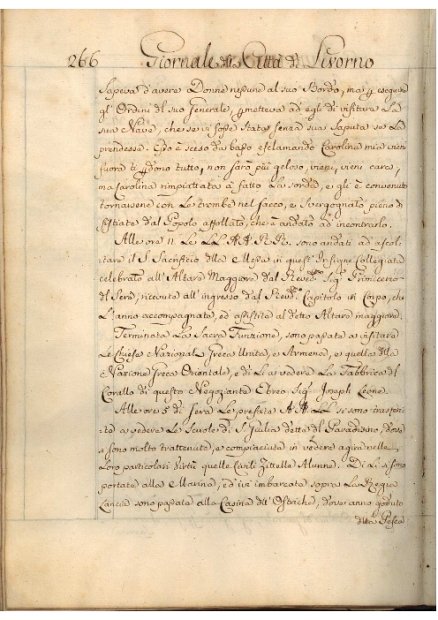 266 Giornale della Città di Livorno
Sapeva d'avere Donne nissune al suo Bordo, ma p eseguir
gl'Ordini del suo Generale, permetteva ad egli di visitare La
sua Nave, che se vi fosse stata senza sua saputa se la
prendesse. Esso è sceso da basso esclamando Carolina mia vieni
fuora ti perdono tutto, non sarò più geloso, vieni, vieni cara,
ma Carolina rimpiattata à fatto La sorda, e gli è convenuto
tornarsene con Le trombe nel sacco, e svergognato pieno di
fistiate dal Popolo affollato, che è andato ad incontrarlo.
Alle ore 11 Le LL. AA. RR. sono andati ad ascol-
tare il S. Sacrificio della Messa in quest'Insigne Collegiata
celebrato all'Altare Maggiore dal Sig. Primicerio
del Sera, ricevuta all'ingresso dal Capitolo in Corpo, che
L'anno accompagnata, ed assistita al detto Altare maggiore.
Terminata La Sacra Funzione, sono passate a visitare
Le Chiese Nazionali Greca Unita, e Armena, e quella della
Nazione Greca Orientale, e di Lì a vedere La Fabbrica del
Corallo di questo Negoziante Ebreo Sig. Joseph Leone.
Alle ore 5 di sera Le prefate AA. LL. si sono trasferi-
te a vedere Le Scuole di S. Giulia detta del Paradisino, dove
si sono molto trattenute, e compiaciute in vedere agire nelle
Loro particolari Virtù quelle Zittelle Alunne. Di Lì si sono
portate alla Marina, ed ivi imbarcate sopra La
Lancia sono passate alla Casina dell'Ostriche, dove anno goduto
della Pesca